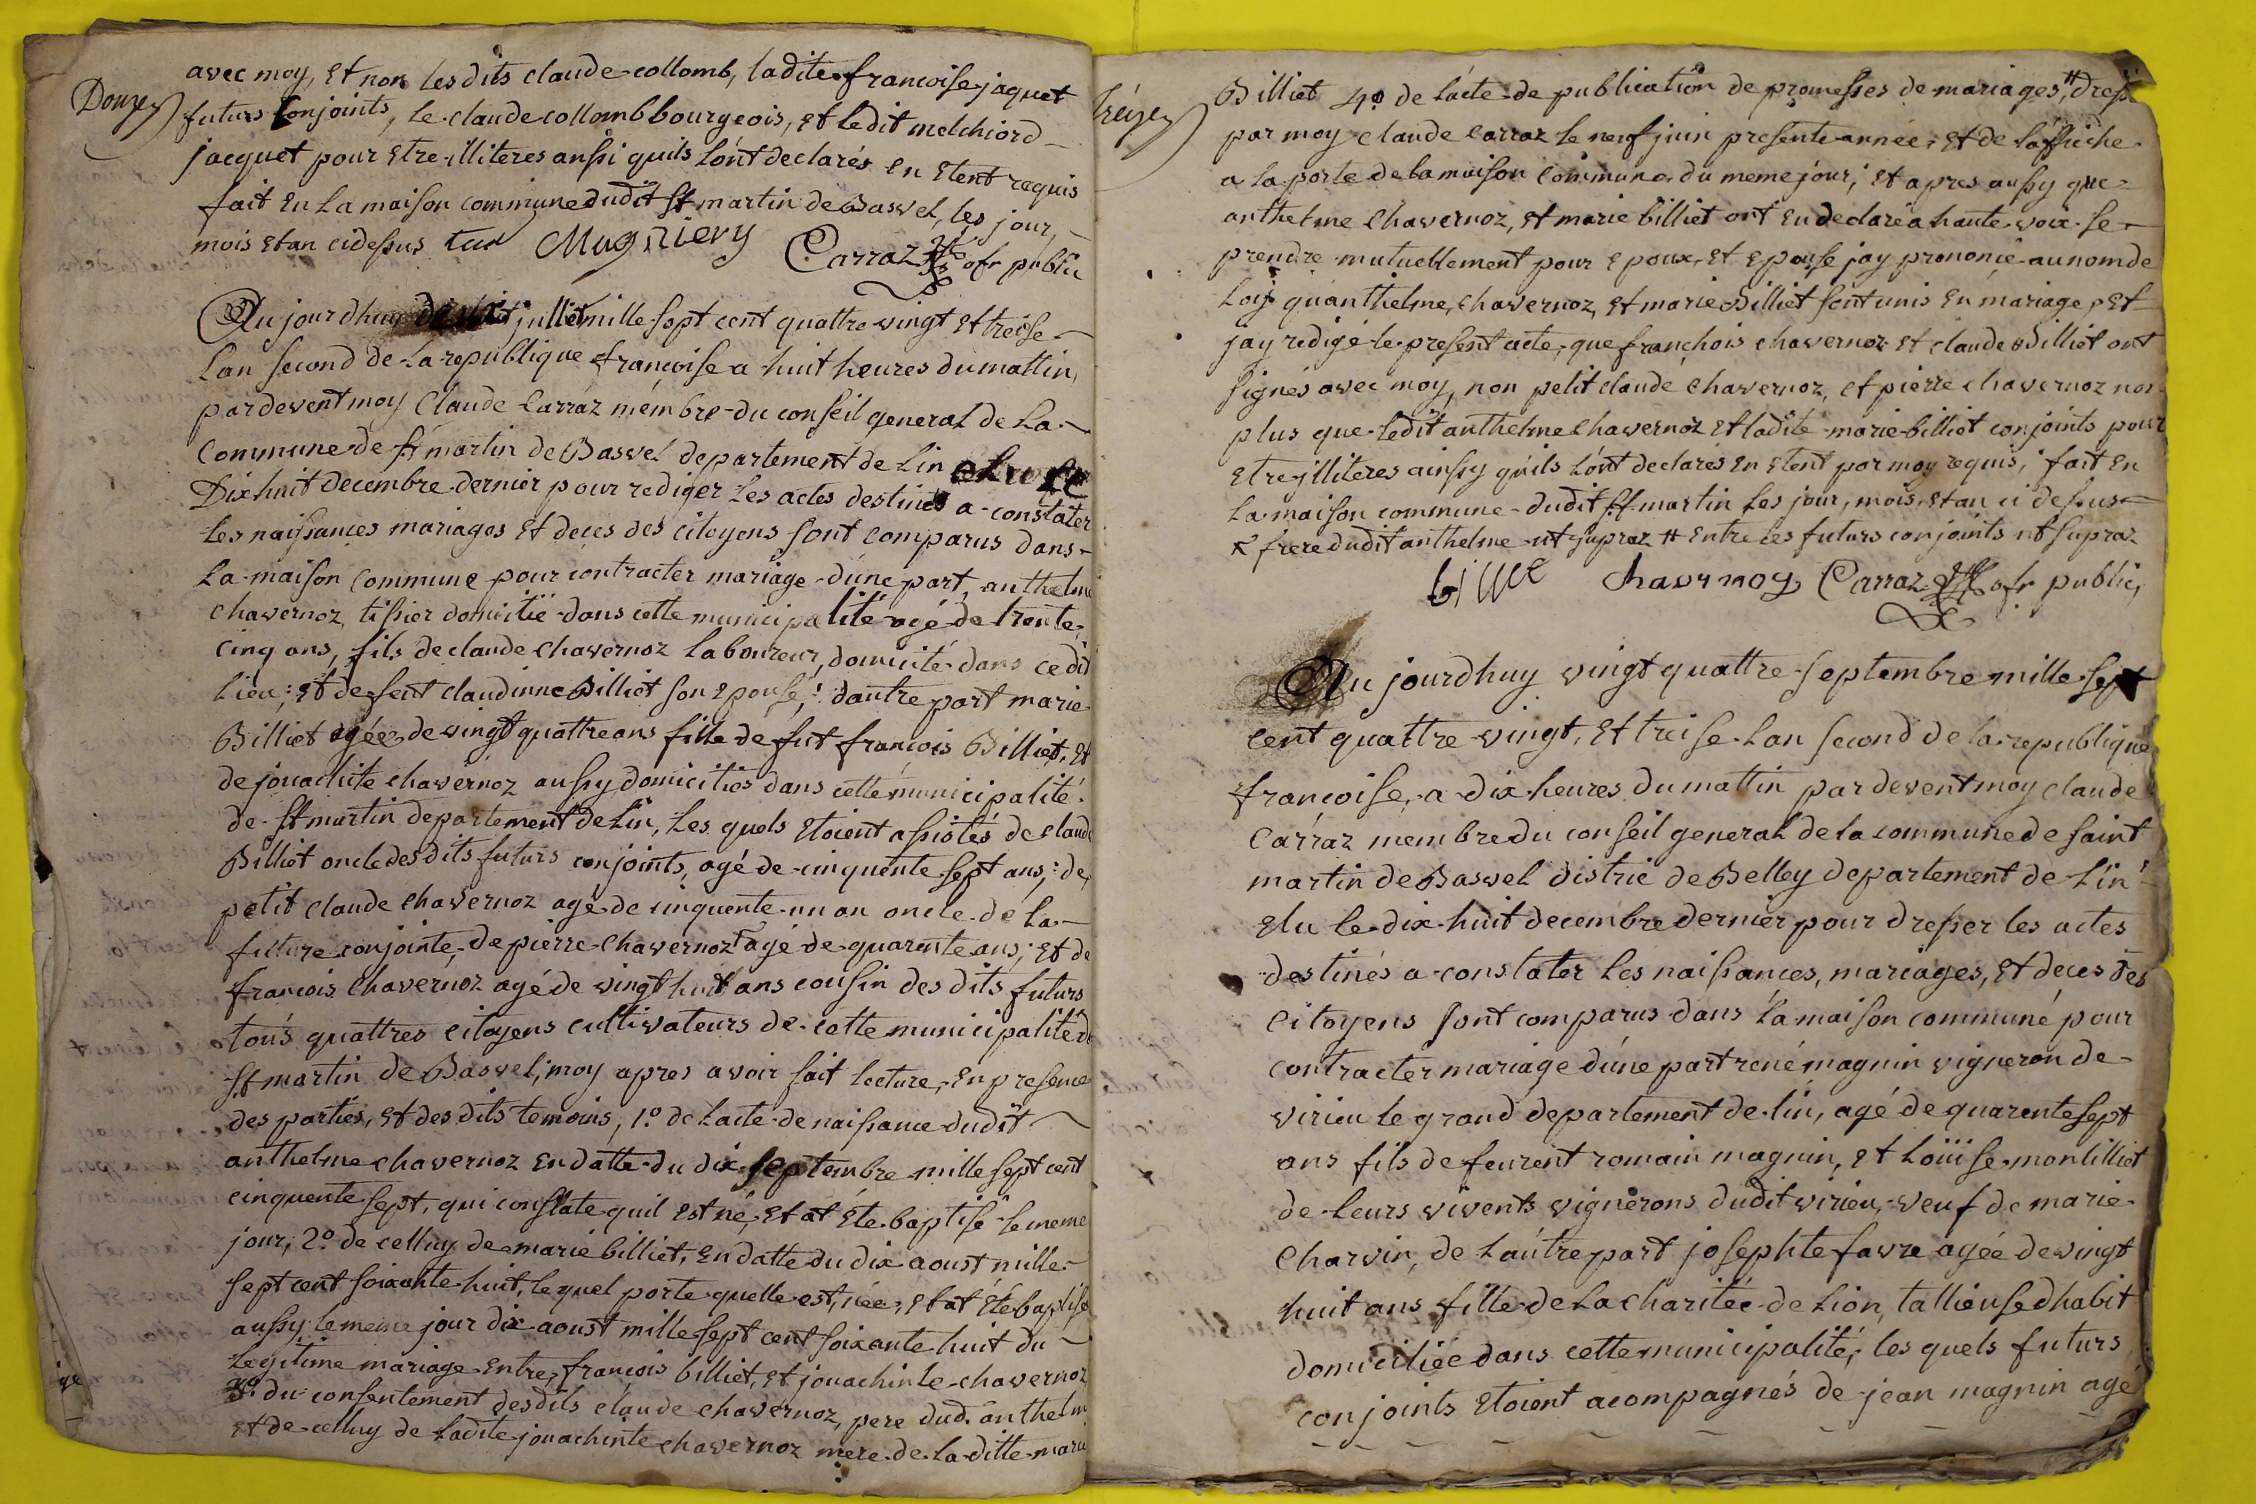 Douzey
avec moy, Et non lesdits claude collomb, ladite francoise jaquet
futurs Conjoints, le claude collomb bourgeois, et ledit melchiord
jacquet pour Etre illiteres aussi quils lónt declarés en Etent requis
fait En la maison commune dudit St martin de Bavvel, les jour,
mois et an cidessus Mugniery Carraz ofr public
Aujourdhuy jullet mille sept cent quattre vingt et treise
lan second de la republique francoise a huit heures du mattin,
pardevent moy Claude Carraz mémbre du conseil general de la
Commune de St martin de Bavvel departement de lin elu le
Dixhuit decembre dernier pour rediger les actes destinés a constater
les naissances mariages et deces des citoyens sont comparus dans
la maison commune pour contracter mariage dúne part, anthelme
chavernoz, tissier domicilié dans cette municipalité agé de trente
cinq ans, fils de claude chavernoz laboureur, domicilié dans ce dit
lieu; et de feut claudinne Billiet son epouse; dautre part marie
Billiet agée de vingt quattre ans fille de fut francois Billiet, Et
de jouachite chavernoz aussy domiciliés dans cette municipalité
de St martin departement de lin, les quels Etoient assistés de claude
Billiet oncle des dits futurs conjoints, agé de cinquente sept ans; de
petit claude chavernoz agé de cinquente un an oncle de la
future conjointe, de pierre chavernoz agé de quarente ans; et de
francois chavernoz agé de vingt huit ans cousin des dits futurs
tous quattres citoyens cultivateurs de cette municipalité de
St martin de Bavvel; moy apres avoir fait lecture, En presence
des parties, et des dits temoins, 1º de lacte de naissance dudit
anthelme chavernoz en datte du dix septembre mille sept cent
cinquente sept, qui constate quil est né, et at été baptisé le meme
jour; 2º de celluy de marie billiet, en datte du dix aoust mille
sept cent soixante huit, le quel porte quelle est, née, et at été baptisé
aussy le meme jour dix aoust mille sept cent soixante huit du
legitime mariage entre francois billiet, et jouachinte chavernoz
3º du consentement desdits claude chavernoz, pere dud. anthelm
et de celluy de ladite jouachinte chavernoz mere de la ditte marie
Tréizey
Billiet 4º de lácte de publication de promesses de mariages, # dressé
par moy claude carraz le neuf juin presente année, et de láffiche
a la porte de la maison commune du meme jour; et apres aussy que
anthelme chavernoz, et marie billiet ont Eu declaré a haute voix se
prendre mutuellement pour epoux, et epouse jay prononcé au nom de
loy quánthelme chavernoz, et marie Billiet sont unis en mariage, et
jay redigé le present acte, que franchois chavernoz et claude Billiet ont
signés avec moy, non petit claude chavernoz, et pierre chavernoz non
plus que ledit anthelme chavernoz et ladite marie billiet conjoints pour
etre illiteres ainsy quils lónt declarés en etent par moy requis, fait en
la maison commune dudit St martin les jour, mois, et an ci dessus
frere dudit anthelme ut supraz # Entre les futurs conjoints ut supraz
billie Chavernoz Carraz ofr public,
Aujourdhuy vingt quattre septembre mille sept
cent quattre vingt, et treise lan second de la republique
francoise, a dix heures du mattin par devent moy claude
Carraz mémbre du conseil general de la commune de saint
martin de Bavvel distric de Belley departement de lin
elu le dix huit decembre dernier pour dresser les actes
destinés a constater les naissances, mariages, et deces des
Citoyens sont comparus dans la maison commune pour
contracter mariage dúne part rené magnin vigneron de
virieu le grand departement de lin, agé de quarente sept
ans fils de feurent romain magnin, et Loüise monlilliet
de leurs vivents vignerons dudit virieu, veuf de marie
Charvin, de láutre part josephte favre agée de vingt
huit ans fille de la charitée de lion, tallieuse dhabit
domiciliée dans cette municipalité; les quels futurs
conjoints etoient acompagnés de jean magnin agé